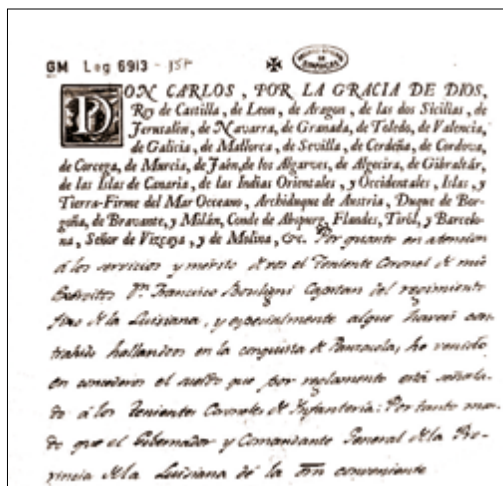 GM Leg 6913 - 158
DON CARLOS, POR LA GRACIA DE DIOS,
Rey de Castilla, de Leon, de Aragon, de las dos Sicilias, de
Jerusalén, de Navarra, de Granada, de Toledo, de Valencia,
de Galicia, de Mallorca, de Sevilla, de Cerdeña, de Cordova,
de Corcega, de Murcia, de Jaén, de los Algarves, de Algecira, de Gibraltár,
de las Islas de Canaria, de las Indias Orientales, y Occidentales, Islas, y
Tierra-Firme del Mar Oceano, Archiduque de Austria, Duque de Bor-
goña, de Bravante, y Milán, Conde de Abspurg, Flandes, Tiról, y Barcelo-
na, Señor de Vizcaya, y de Molina, &c. Por quanto en atencion
á los servicios y merito de vos el Teniente Coronel de mis
Exércitos Dn. Francisco Bouligni Capitan del regimiento
fixo de la Luisiana, y especialmente al que haveis con-
trahido hallandoos en la conquista de Panzacola, he venido
en concederos el sueldo que por reglamento está señala-
do á los Tenientes Coroneles de Infantería: Por tanto man-
do que el Gobernador y Comandante General de la Pro-
vincia de la Luisiana dé la orn conveniente